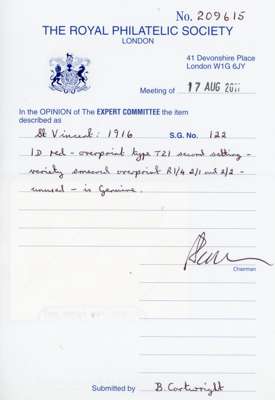 No. 209615
THE ROYAL PHILATELIC SOCIETY
LONDON
41 Devonshire Place
London W1G 6JY
Meeting of 17 AUG 2011
In the OPINION of The EXPERT COMMITTEE the item
described as
St Vincent: 1916 S.G. No. 122
1D red - overprint type T21 second setting -
variety smeared overprint R1/4 2/1 and 2/2 -
unused - is Genuine.
Chairman
Submitted by B. Cartwright